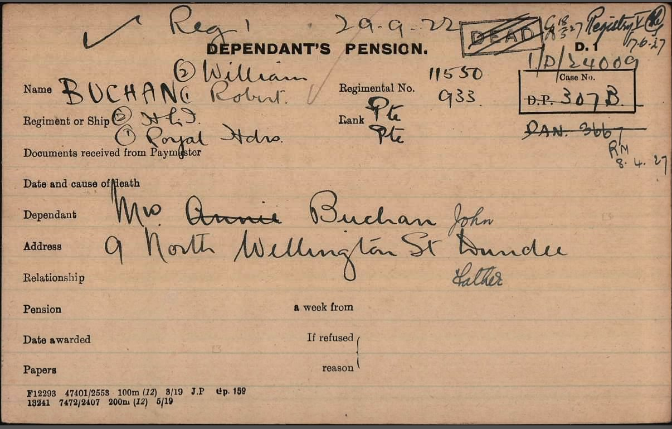 Reg 1 29-9-22 DEAD Registry
DEPENDANT'S PENSION. D. 1
1/D/24009
② William 11550 Case No.
Name BUCHAN ① Robert. Regimental No. 933. D.P. 307 B.
Regiment or Ship ② H.L.I. Rank Pte DAN. 3667
① Royal Hdrs. Pte RM
8.4.27
Documents received from Paymaster
Date and cause of death
Dependant Mrs Annie Buchan John
Address 9 North Wellington St Dundee
Relationship Father
Pension a week from
Date awarded If refused
Papers reason
F12293 47401/2553 100m (12) 3/19 J.P Gp. 159
13241 7472/2407 200m (12) 5/19